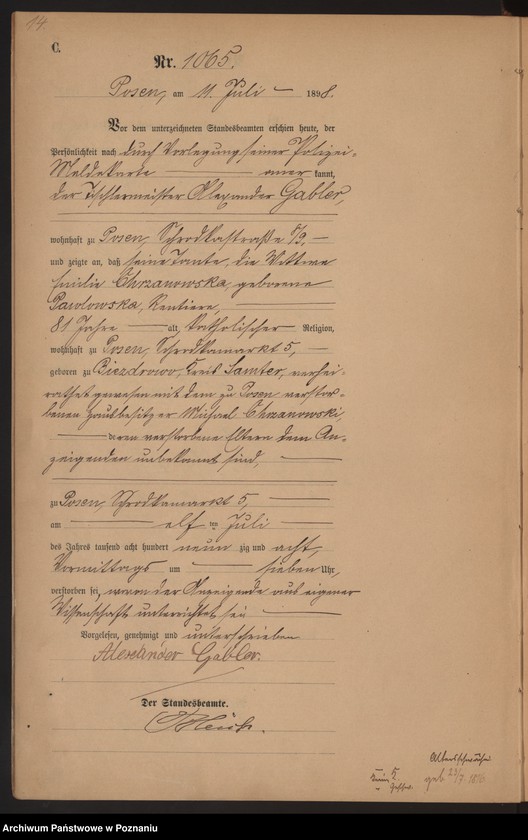 14.
C.
Nr. 1065.
Posen, am 11. Juli 1898.
Vor dem unterzeichneten Standesbeamten erschien heute, der
Persönlichkeit nach durch Vorlegung seiner Polizei-
Meldekarte aner kannt,
der Tischlermeister Alexander Gabler,
wohnhaft zu Posen, Schrodkastraße 8/9,
und zeigte an, daß seine Tante, die Wittwe
Emilie Chrzanowska, geborene
Pawlowska, Rentiere,
81 Jahre alt, katholischer Religion,
wohnhaft zu Posen, Schrodkamarkt 5,
geboren zu Biezdrowo, Kreis Samter, verhei-
rathet gewesen mit dem zu Posen verstor-
benen Hausbesitzer Michael Chrzanowski,
deren verstorbene Eltern dem An-
zeigenden unbekannt sind,
zu Posen, Schrodkamarkt 5,
am elf ten Juli
des Jahres tausend acht hundert neun zig und acht,
Vormittags um sieben Uhr,
verstorben sei, wovon der Anzeigende aus eigener
Wissenschaft unterrichtet sei
Vorgelesen, genehmigt und unterschrieben
Alexander Gabler.
Der Standesbeamte.
Altersschwäche
geb 23/7. 1816
Archiwum Państwowe w Poznaniu